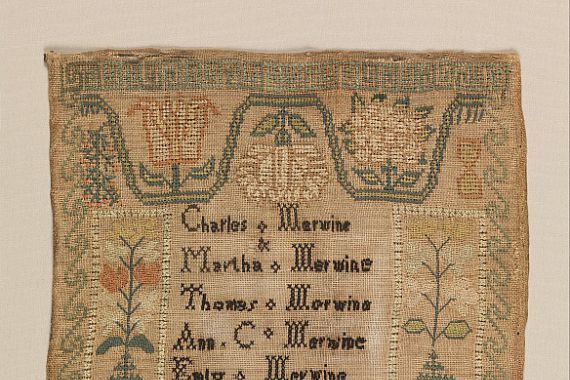 Charles Merwine
&
Martha Merwine
Thomas Merwine
Ann C Merwine
Merwine